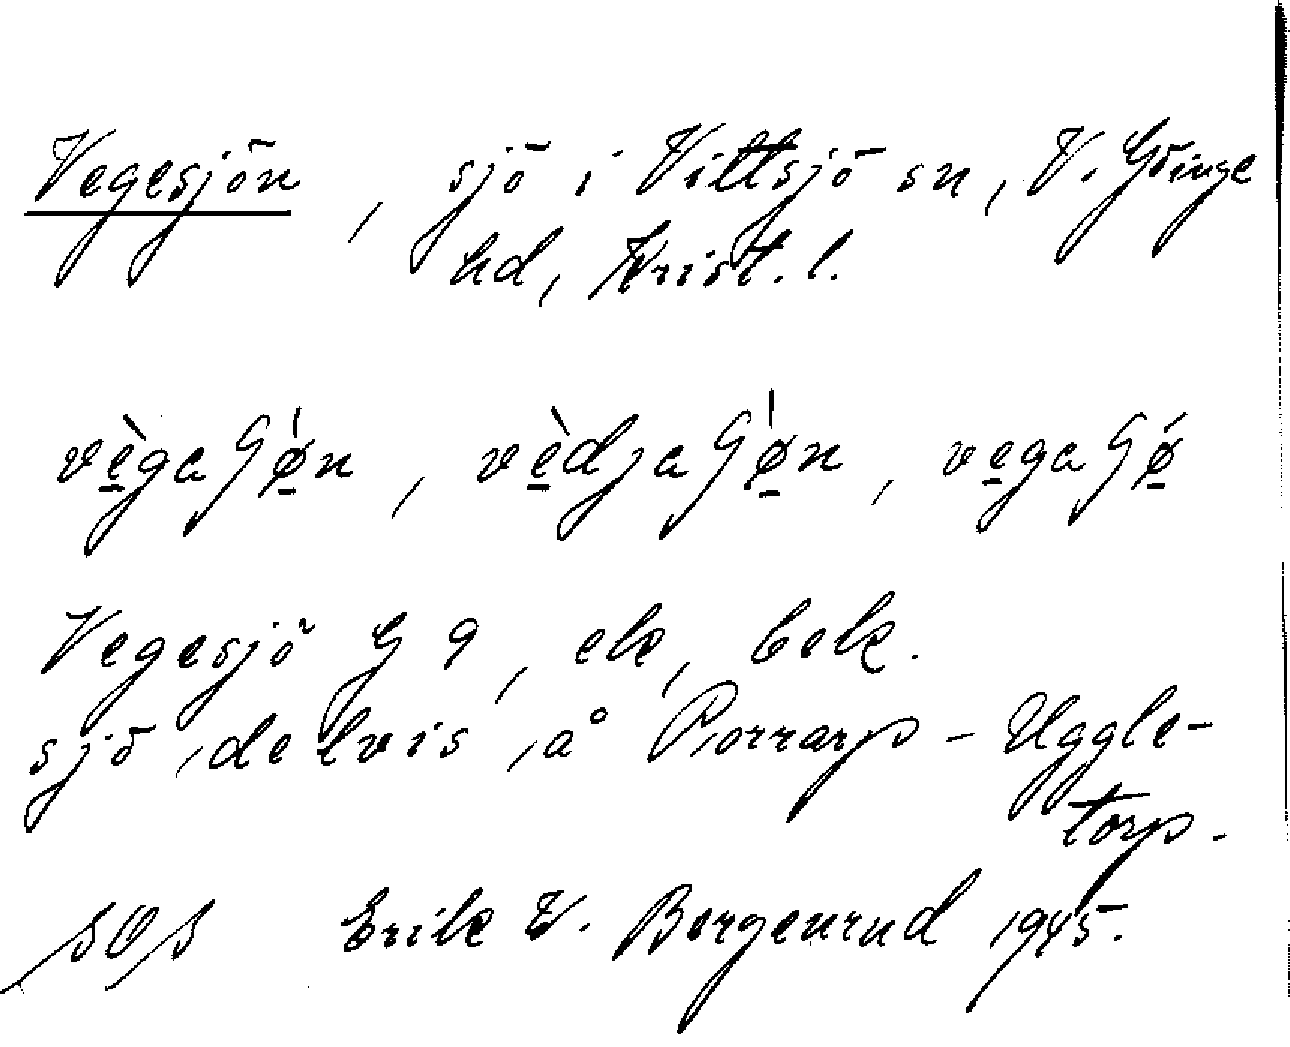 Vegesjön, sjö i Vittsjö sn, V. Göinge
hd, Krist. l.
vègaʃø̀n, vèdjaʃø̀n, vegaʃǿ
Vegesjö G 9, ek, bek.
sjö, delvis, å Porrarp - Uggle-
torp.
SOS Erik W. Borgenrud 1945.